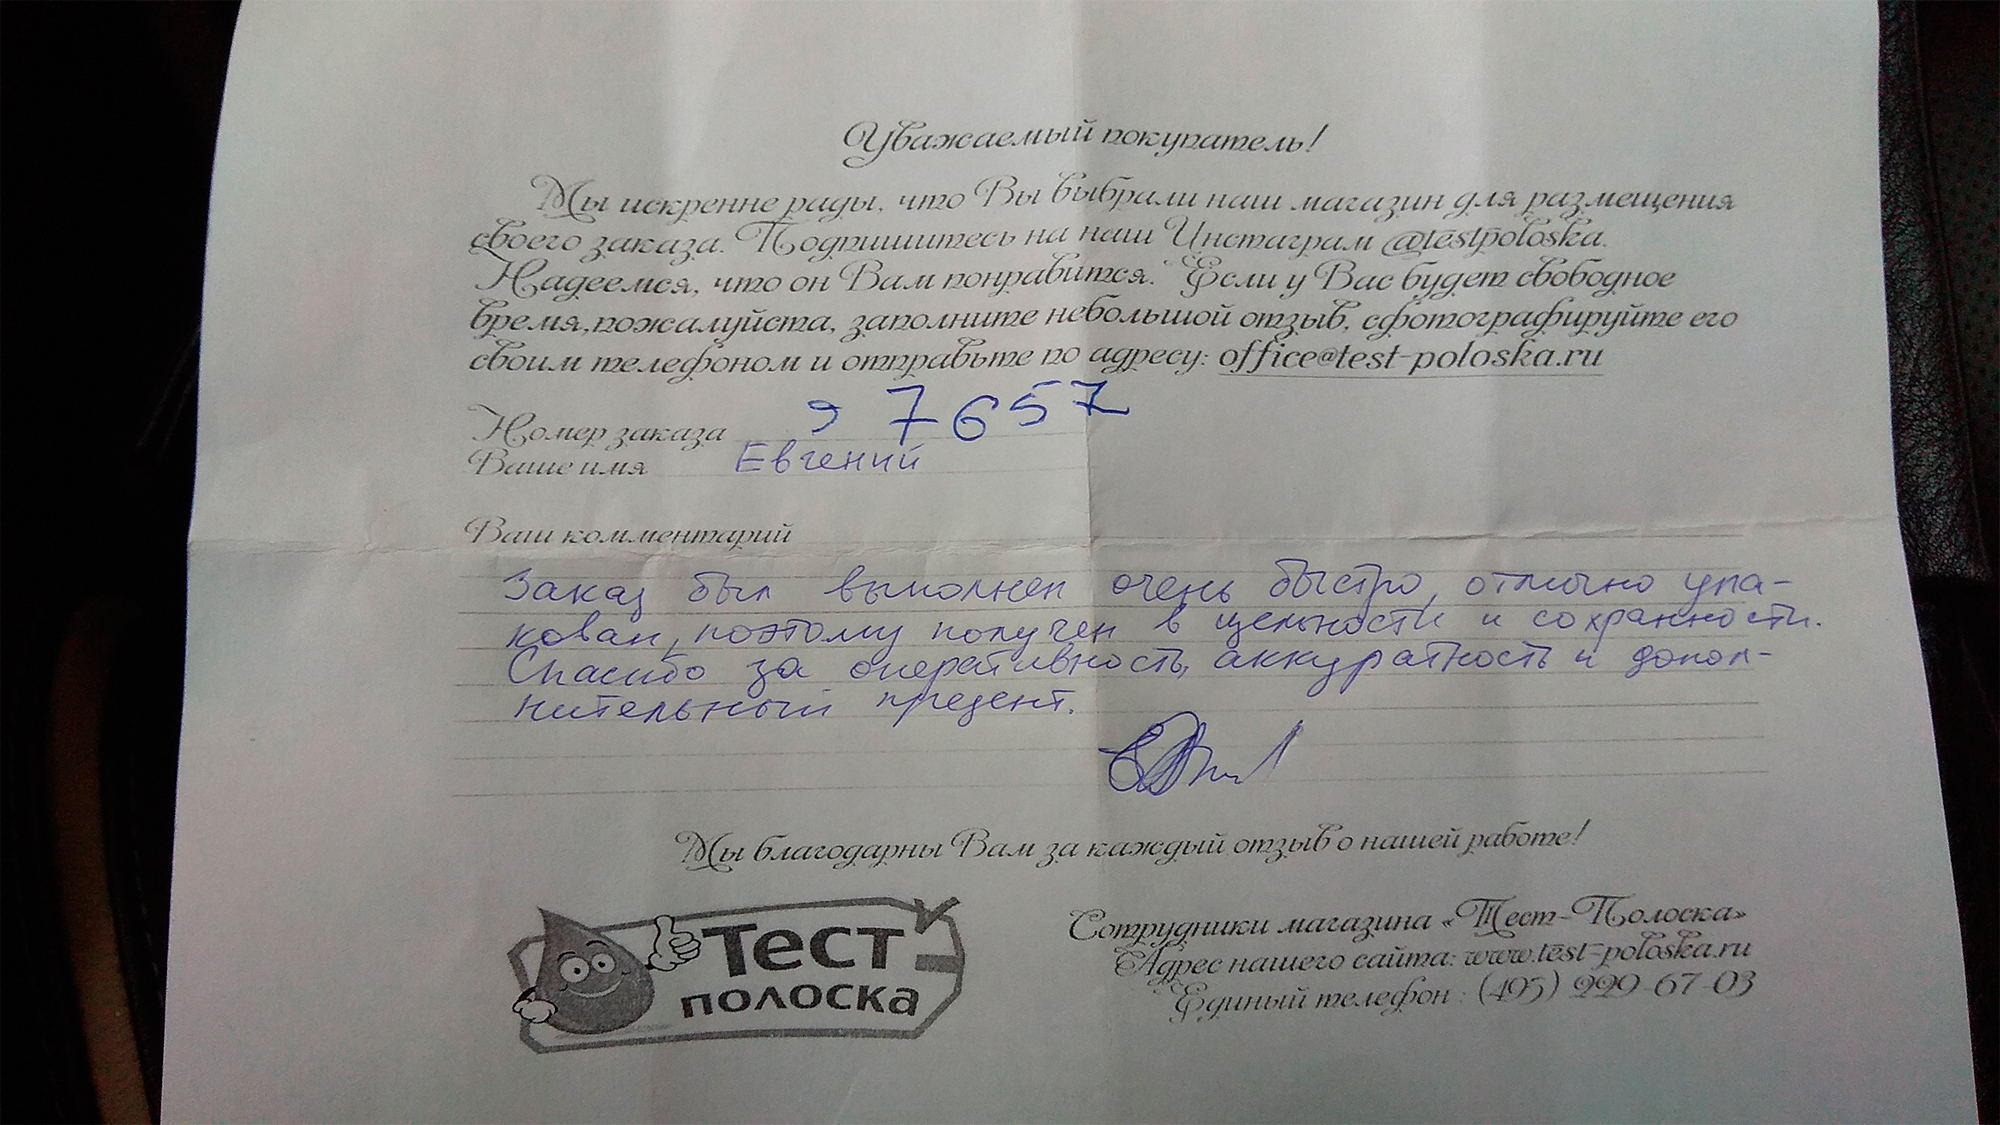 Уважаемый покупатель!
Мы искренне рады, что Вы выбрали наш магазин для размещения
своего заказа. Подпишитесь на наш Инстаграм @testpoloska.
Надеемся, что он Вам понравится. Если у Вас будет свободное
время, пожалуйста, заполните небольшой отзыв, сфотографируйте его
своим телефоном и отправьте по адресу: office@test-poloska.ru
Номер заказа 7657
Ваше имя Евгений
Ваш комментарий
Заказ был выполнен очень быстро, отлично упа-
кован, поэтому получен в цельности и сохранности.
Спасибо за оперативность, аккуратность и допол-
нительный презент.
Мы благодарны Вам за каждый отзыв о нашей работе!
Тест
полоска
Сотрудники магазина «Тест-Полоска»
Адрес нашего сайта: www.test-poloska.ru
Единый телефон : (495) 229-67-03